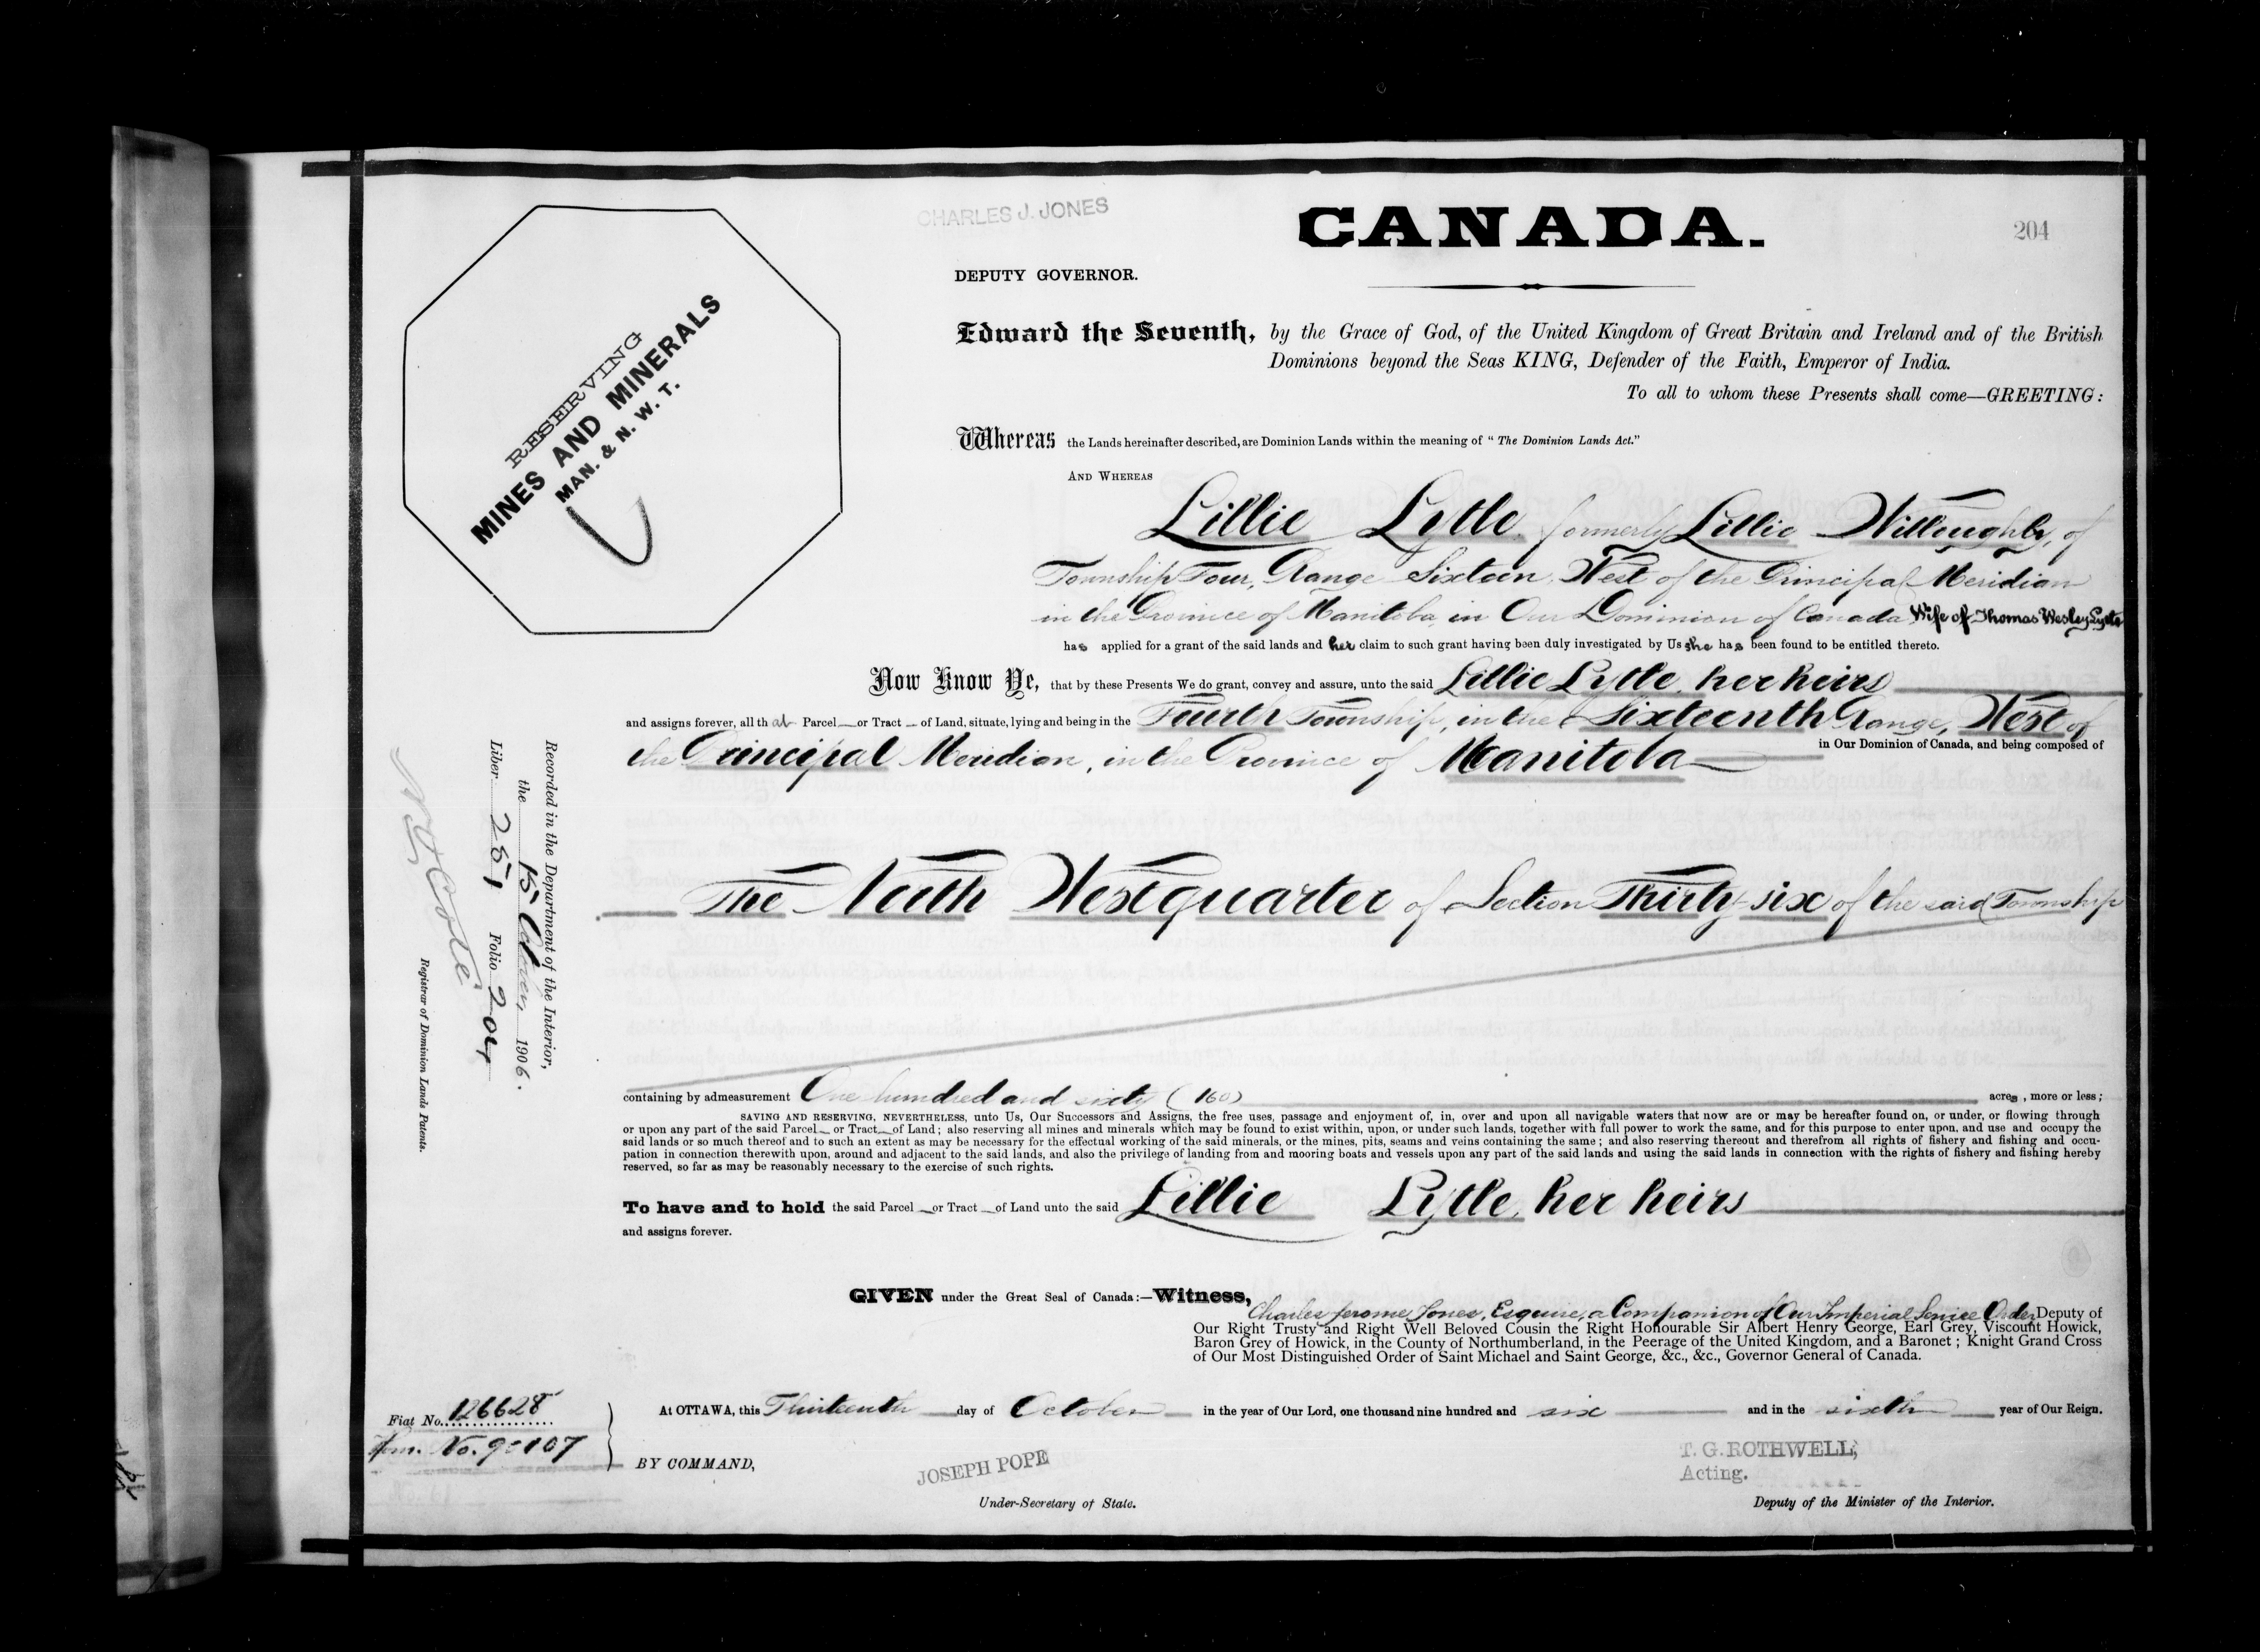 CHARLES J. JONES
CANADA.
204
DEPUTY GOVERNOR.
Edward the Seventh, by the Grace of God, of the United Kingdom of Great Britain and Ireland and of the British
Dominions beyond the Seas KING, Defender of the Faith, Emperor of India.
To all to whom these Presents shall come—GREETING:
RESERVING
MINES AND MINERALS
MAN. & N. W. T.
Whereas the Lands hereinafter described, are Dominion Lands within the meaning of "The Dominion Lands Act."
AND WHEREAS
Lillie Lytle formerly Lillie Willoughby, of
Township Four, Range Sixteen, West of the Principal Meridian
in the Province of Manitoba, in Our Dominion of Canada Wife of Thomas Wesley Lytle
has applied for a grant of the said lands and her claim to such grant having been duly investigated by Us she has been found to be entitled thereto.
Now Know Ye, that by these Presents We do grant, convey and assure, unto the said Lillie Lytle, her heirs
and assigns forever, all that Parcel or Tract of Land, situate, lying and being in the Fourth Township, in the Sixteenth Range, West of
the Principal Meridian, in the Province of Manitoba in Our Dominion of Canada, and being composed of
The North West quarter of Section Thirty-six of the said Township
containing by admeasurement One hundred and sixty (160) acres, more or less;
SAVING AND RESERVING, NEVERTHELESS, unto Us, Our Successors and Assigns, the free uses, passage and enjoyment of, in, over and upon all navigable waters that now are or may be hereafter found on, or under, or flowing through
or upon any part of the said Parcel or Tract of Land; also reserving all mines and minerals which may be found to exist within, upon, or under such lands, together with full power to work the same, and for this purpose to enter upon, and use and occupy the
said lands or so much thereof and to such an extent as may be necessary for the effectual working of the said minerals, or the mines, pits, seams and veins containing the same; and also reserving thereout and therefrom all rights of fishery and fishing and occu-
pation in connection therewith upon, around and adjacent to the said lands, and also the privilege of landing from and mooring boats and vessels upon any part of the said lands and using the said lands in connection with the rights of fishery and fishing hereby
reserved, so far as may be reasonably necessary to the exercise of such rights.
To have and to hold the said Parcel or Tract of Land unto the said Lillie Lytle, her heirs
and assigns forever.
GIVEN under the Great Seal of Canada:—Witness,
Charles Jerome Jones, Esquire, a Companion of Our Imperial Service Order Deputy of
Our Right Trusty and Right Well Beloved Cousin the Right Honourable Sir Albert Henry George, Earl Grey, Viscount Howick,
Baron Grey of Howick, in the County of Northumberland, in the Peerage of the United Kingdom, and a Baronet; Knight Grand Cross
of Our Most Distinguished Order of Saint Michael and Saint George, &c., &c., Governor General of Canada.
At OTTAWA, this Thirteenth day of October in the year of Our Lord, one thousand nine hundred and six and in the sixth year of Our Reign.
Fiat No. 126628
No. 90107
BY COMMAND,
JOSEPH POPE
Under-Secretary of State.
T. G. ROTHWELL,
Acting.
Deputy of the Minister of the Interior.
Recorded in the Department of the Interior,
the 15 October, 1906.
Liber 251 Folio 204
N O Coté
Registrar of Dominion Lands Patents.